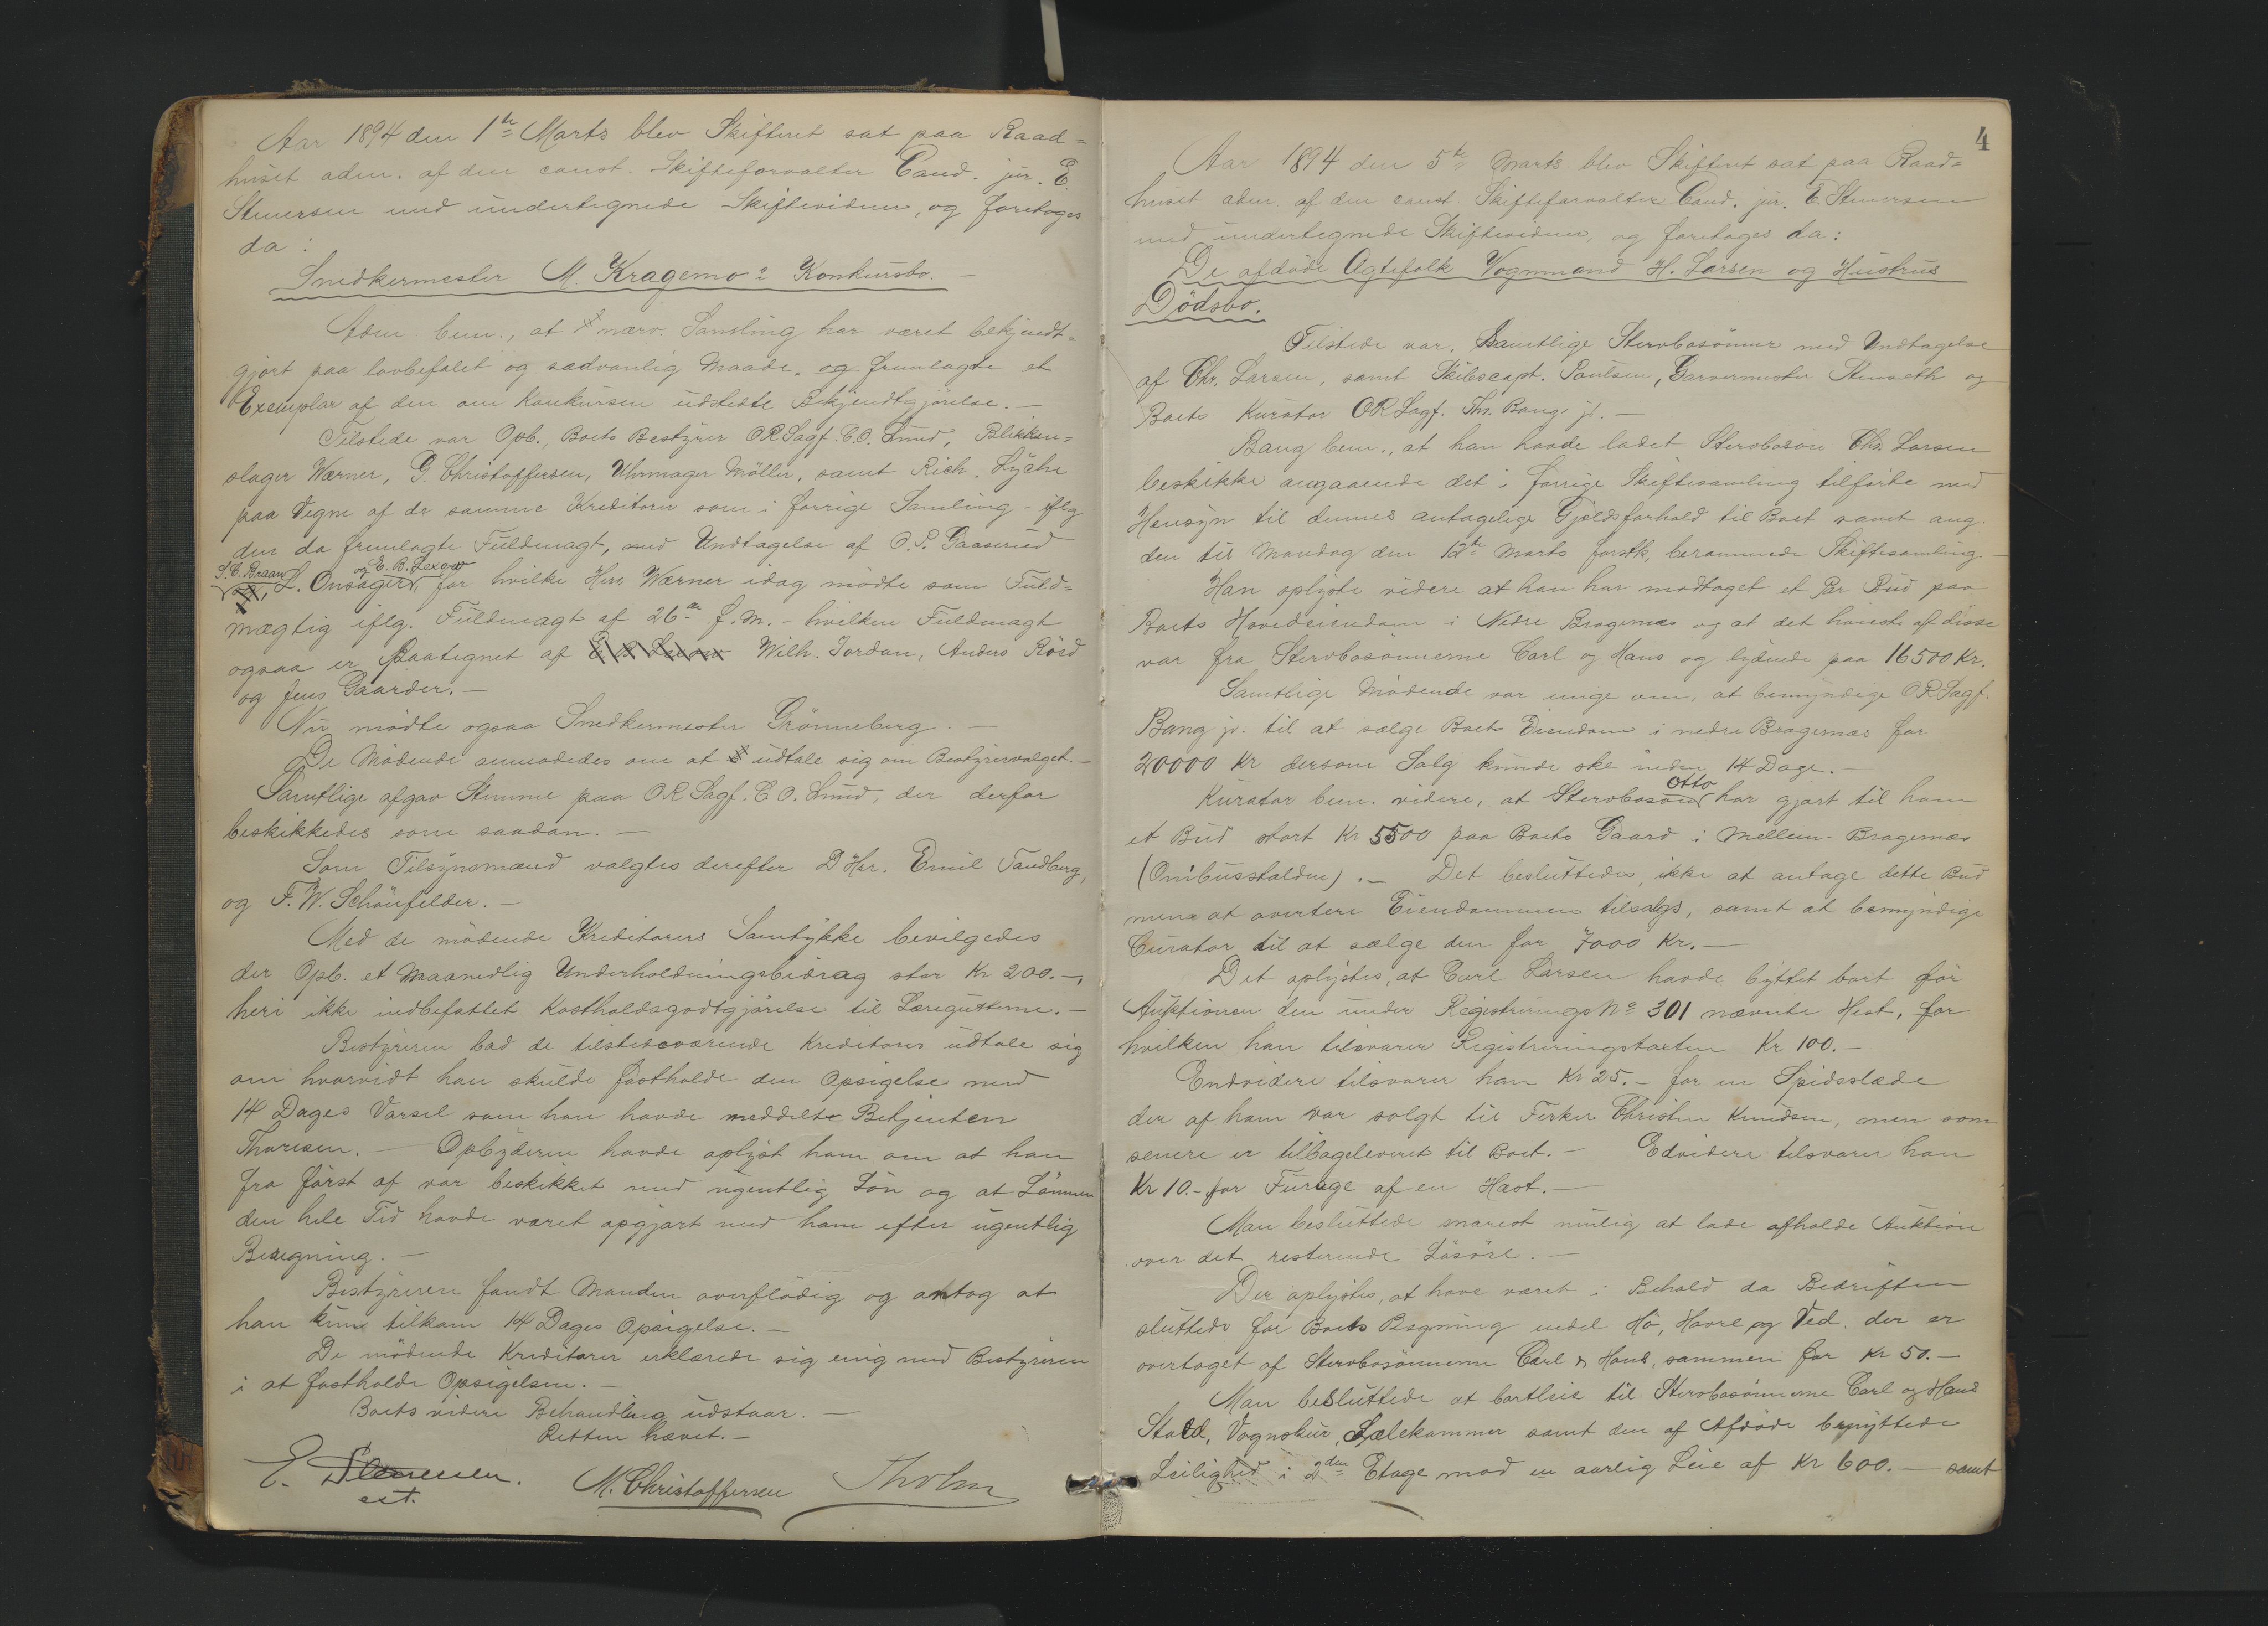 Aar 1894 den 1ste Marts blev Skifteret sat paa Raad=
huset adm. af den const. Skifteforvalter Cand. jur. E.
Stenersen med undertegnede Skiftevidner, og foretoges
da:
Snedkermester M. Kragemo's Konkursbo. -
Adm. bem., at nærv. Samling har været bekjendt=
gjort paa lovbefalet og sædvanlig Maade, og fremlagde et
Exemplar af den om Konkursen udstedte Bekjendtgjörelse. -
Tilstede var Opb., Boets Bestyrer ORSagf. C.O. Lund, Blikken=
slager Wærner, G. Christoffersen, Uhrmager Möller, samt Rich. Lyche
paa Vegne af de samme Kreditorer som i forrige Samling - iflg
den da fremlagte Fuldmagt, med Undtagelse af O.P. Gaaserud
S.C. Braan, L. Onsager og E.B. Lexow, for hvilke Herr Wærner idag mödte som Fuld=
mægtig iflg. Fuldmagt af 26de f.M. - hvilken Fuldmagt
ogsaa er paategnet af Wilh. Jordan, Anders Röed
og Jens Gaarder. -
Nu mödte ogsaa Snedkermester Grönneberg. -
De Mödende anmodedes om at udtale sig om Bestyrervalget. -
Samtlige afgav Stemme paa ORSagf. C.O. Lund, der derfor
beskikkedes som saadan. -
Som Tilsynsmænd valgtes derefter D'Hrr. Emil Sandberg,
og F.W. Schönfelder. -
Med de mödende Kreditorers Samtykke bevilgedes
der Opb. et maanedlig Underholdningsbidrag stor Kr 200. -,
heri ikke indbefattet Kostholdsgodtgjörelse til Læregutterne. -
Bestyreren bad de tilstedeværende Kreditorer udtale sig
om hvorvidt han skulde fastholde den Opsigelse med
14 Dages Varsel som han havde meddelt Betjenten
Thoresen. - Opbyderen havde oplyst ham om at han
fra först af var beskikket med ugentlig Lön og at Lönnen
den hele Tid havde været opgjort med ham efter ugentlig
Beregning. -
Bestyreren fandt Manden overflödig og antog at
han kun tilkom 14 Dages Opsigelse. -
De mödende Kreditorer erklærede sig enig med Bestyreren
i at fastholde Opsigelsen. -
Boets videre Behandling udstaar. -
Retten hævet. -
E. Stenersen. M. Christoffersen Tholm
cst.
4
Aar 1894 den 5te Marts blev Skifteret sat paa Raad=
huset adm. af den const. Skifteforvalter Cand. jur. E Stenersen
med undertegnede Skiftevidner, og foretoges da:
De afdöde Ægtefolk Vognmand H. Larsen og Hustrus
Dödsbo.
Tilstede var, Samtlige Stervbosönner med Undtagelse
af Chr. Larsen, samt Skibscapt. Paulsen, Garvermester Stenseth og
Boets Kurator ORSagf. Th. Bang jr. -
Bang bem., at han havde ladet Stervbosön Chr. Larsen
beskikke angaaende det i forrige Skiftesamling tilförte med
Hensyn til dennes antagelige Gjældsforhold til Boet samt ang.
den til Mandag den 12te Marts förstk. berammede Skiftesamling. -
Han oplyste videre at han har modtaget et Par Bud paa
Boets Hovedeiendom i Nedre Bragernæs og at det höieste af disse
var fra Stervbosönnerne Carl og Hans og lydende paa 16500 Kr.
Samtlige Mödende var enige om, at bemyndige ORSagf.
Bang jr. til at sælge Boets Eiendom i nedre Bragernæs for
20000 Kr dersom Salg kunde ske inden 14 Dage. -
Kurator bem. videre, at Stervbosön Otto har gjort til ham
et Bud stort Kr 5500 paa Boets Gaard i Mellem-Bragernæs
(Omibusstalden). - Det besluttedes, ikke at antage dette Bud
men at avertere Eiendommen tilsalgs, samt at bemyndige
Curator til at sælge den for 7000 Kr. -
Det oplystes, at Carl Larsen havde byttet bort för
Auktionen den under Registrerings No 301 nævnte Hest, for
hvilken han tilsvarer Registreringstaxten Kr 100. -
Endvidere tilsvarer han Kr 25. - for en Spidsslæde
der af ham var solgt til Firker Christen Knudsen, men som
senere er tilbageleveret til Boet. - Edvidere tilsvarer han
Kr 10. - for Furage af en Hest. -
Man besluttede snarest mulig at lade afholde Auktion
over det resterende Lösöre. -
Der oplystes, at have været i Behold da Bedriften
sluttede for Boets Regning endel Hö, Havre og Ved, der er
overtaget af Stervbosönnerne Carl & Hans, sammen for Kr 50. -
Man besluttede at bortleie til Stervbosönnerne Carl og Hans
Stald, Vognskur, Sælekammer samt den af Afdöde benyttede
Leilighed i 2den Etage mod en aarlig Leie af Kr 600. - samt